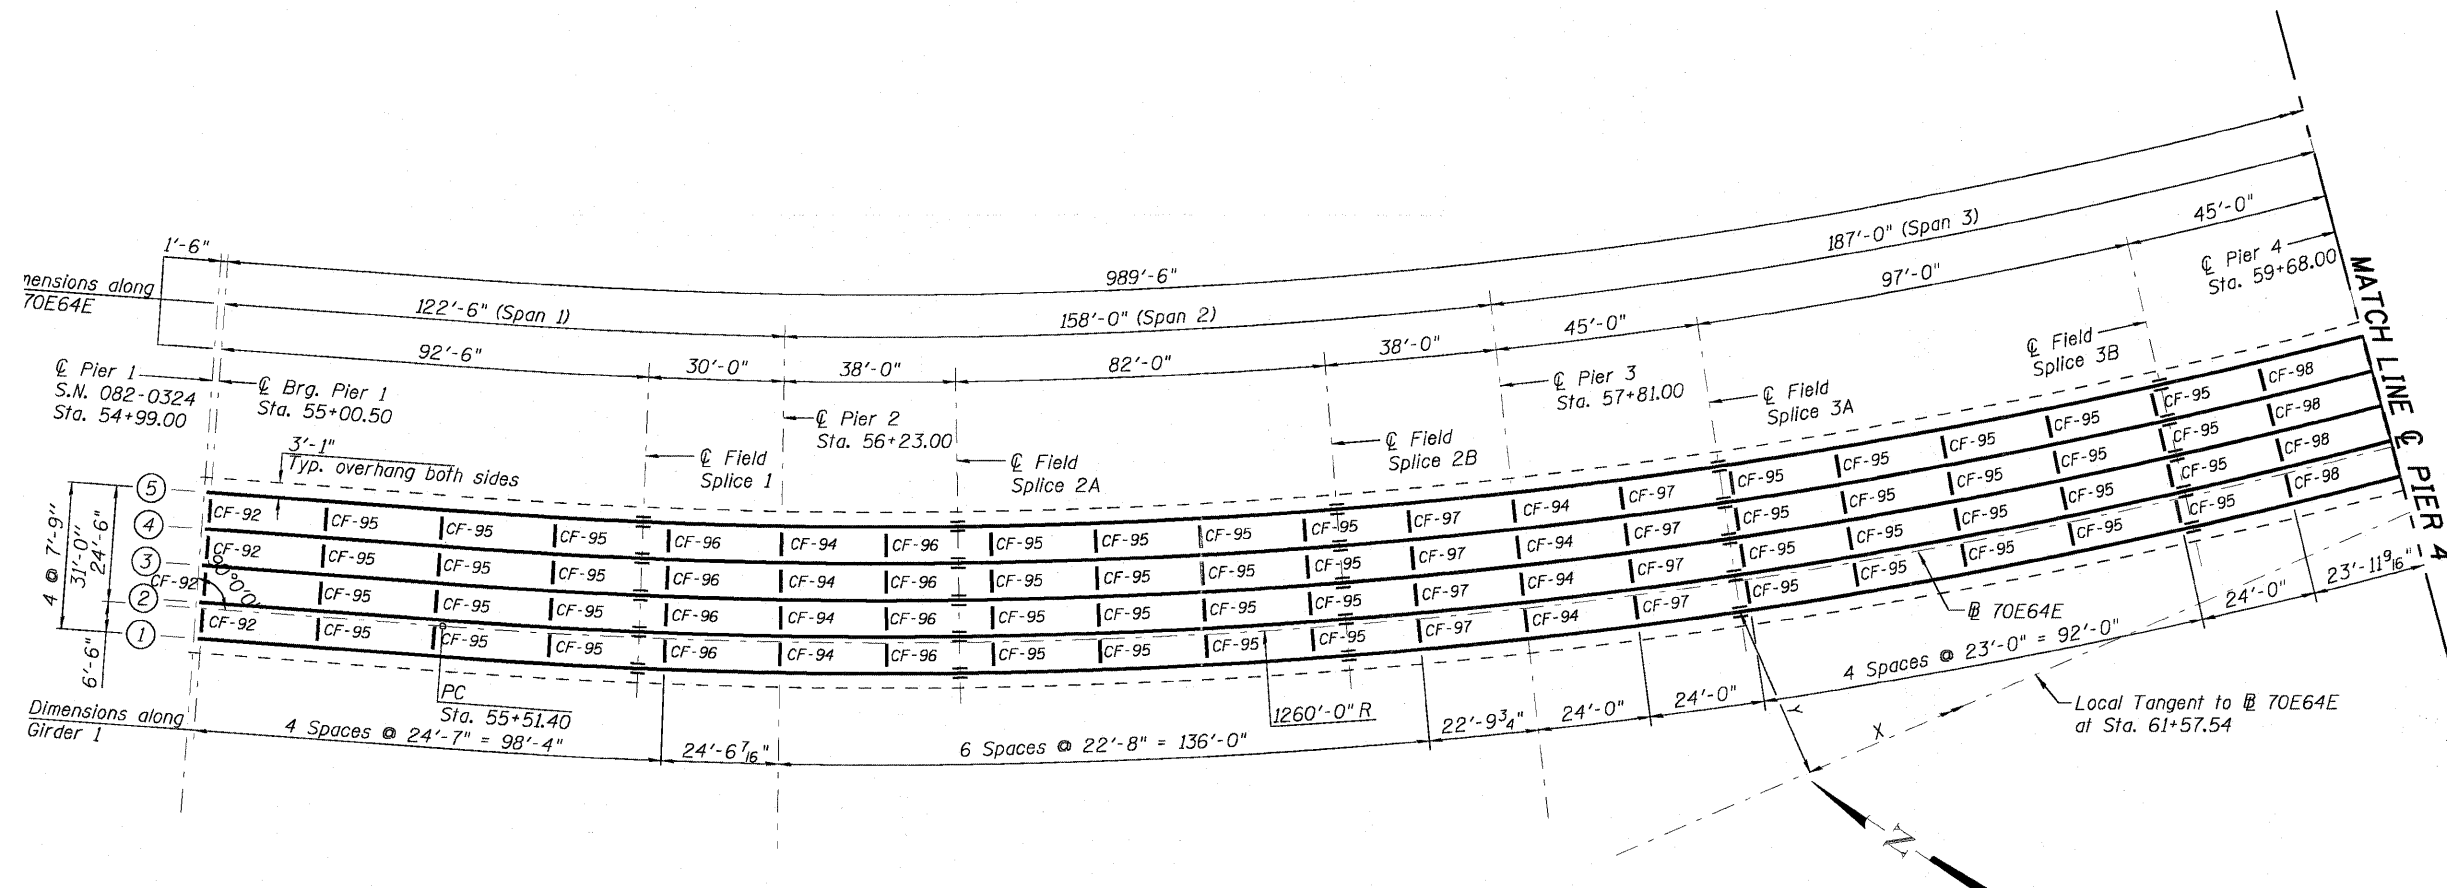 1'-6"
989'-6"
187'-0" (Span 3)
45'-0"
mensions along
70E64E
122'-6" (Span 1)
158'-0" (Span 2)
45'-0"
97'-0"
92'-6"
30'-0"
38'-0"
82'-0"
38'-0"
℄ Pier 4
Sta. 59+68.00
MATCH LINE ℄ PIER 4
℄ Pier 1
S.N. 082-0324
Sta. 54+99.00
℄ Brg. Pier 1
Sta. 55+00.50
℄ Pier 2
Sta. 56+23.00
℄ Pier 3
Sta. 57+81.00
℄ Field
Splice 3A
℄ Field
Splice 3B
3'-1"
Typ. overhang both sides
℄ Field
Splice 1
℄ Field
Splice 2A
℄ Field
Splice 2B
5
4
3
2
1
4 @ 7'-9"
31'-0"
24'-6"
6'-6"
CF-92 CF-95 CF-95 CF-95 CF-96 CF-94 CF-96 CF-95 CF-95 CF-95 CF-95 CF-97 CF-94 CF-97 CF-95 CF-95 CF-95 CF-95 CF-95 CF-98
CF-92 CF-95 CF-95 CF-95 CF-96 CF-94 CF-96 CF-95 CF-95 CF-95 CF-95 CF-97 CF-94 CF-97 CF-95 CF-95 CF-95 CF-95 CF-95 CF-98
CF-92 CF-95 CF-95 CF-95 CF-96 CF-94 CF-96 CF-95 CF-95 CF-95 CF-95 CF-97 CF-94 CF-97 CF-95 CF-95 CF-95 CF-95 CF-95 CF-98
CF-92 CF-95 CF-95 CF-95 CF-96 CF-94 CF-96 CF-95 CF-95 CF-95 CF-95 CF-97 CF-94 CF-97 CF-95 CF-95 CF-95 CF-95 CF-95 CF-98
PC
Sta. 55+51.40
1260'-0" R
Dimensions along
Girder 1
4 Spaces @ 24'-7" = 98'-4"
24'-6 7/16"
6 Spaces @ 22'-8" = 136'-0"
22'-9 3/4"
24'-0"
24'-0"
4 Spaces @ 23'-0" = 92'-0"
24'-0"
23'-11 9/16"
℔ 70E64E
Local Tangent to ℔ 70E64E
at Sta. 61+57.54
Y
X
N